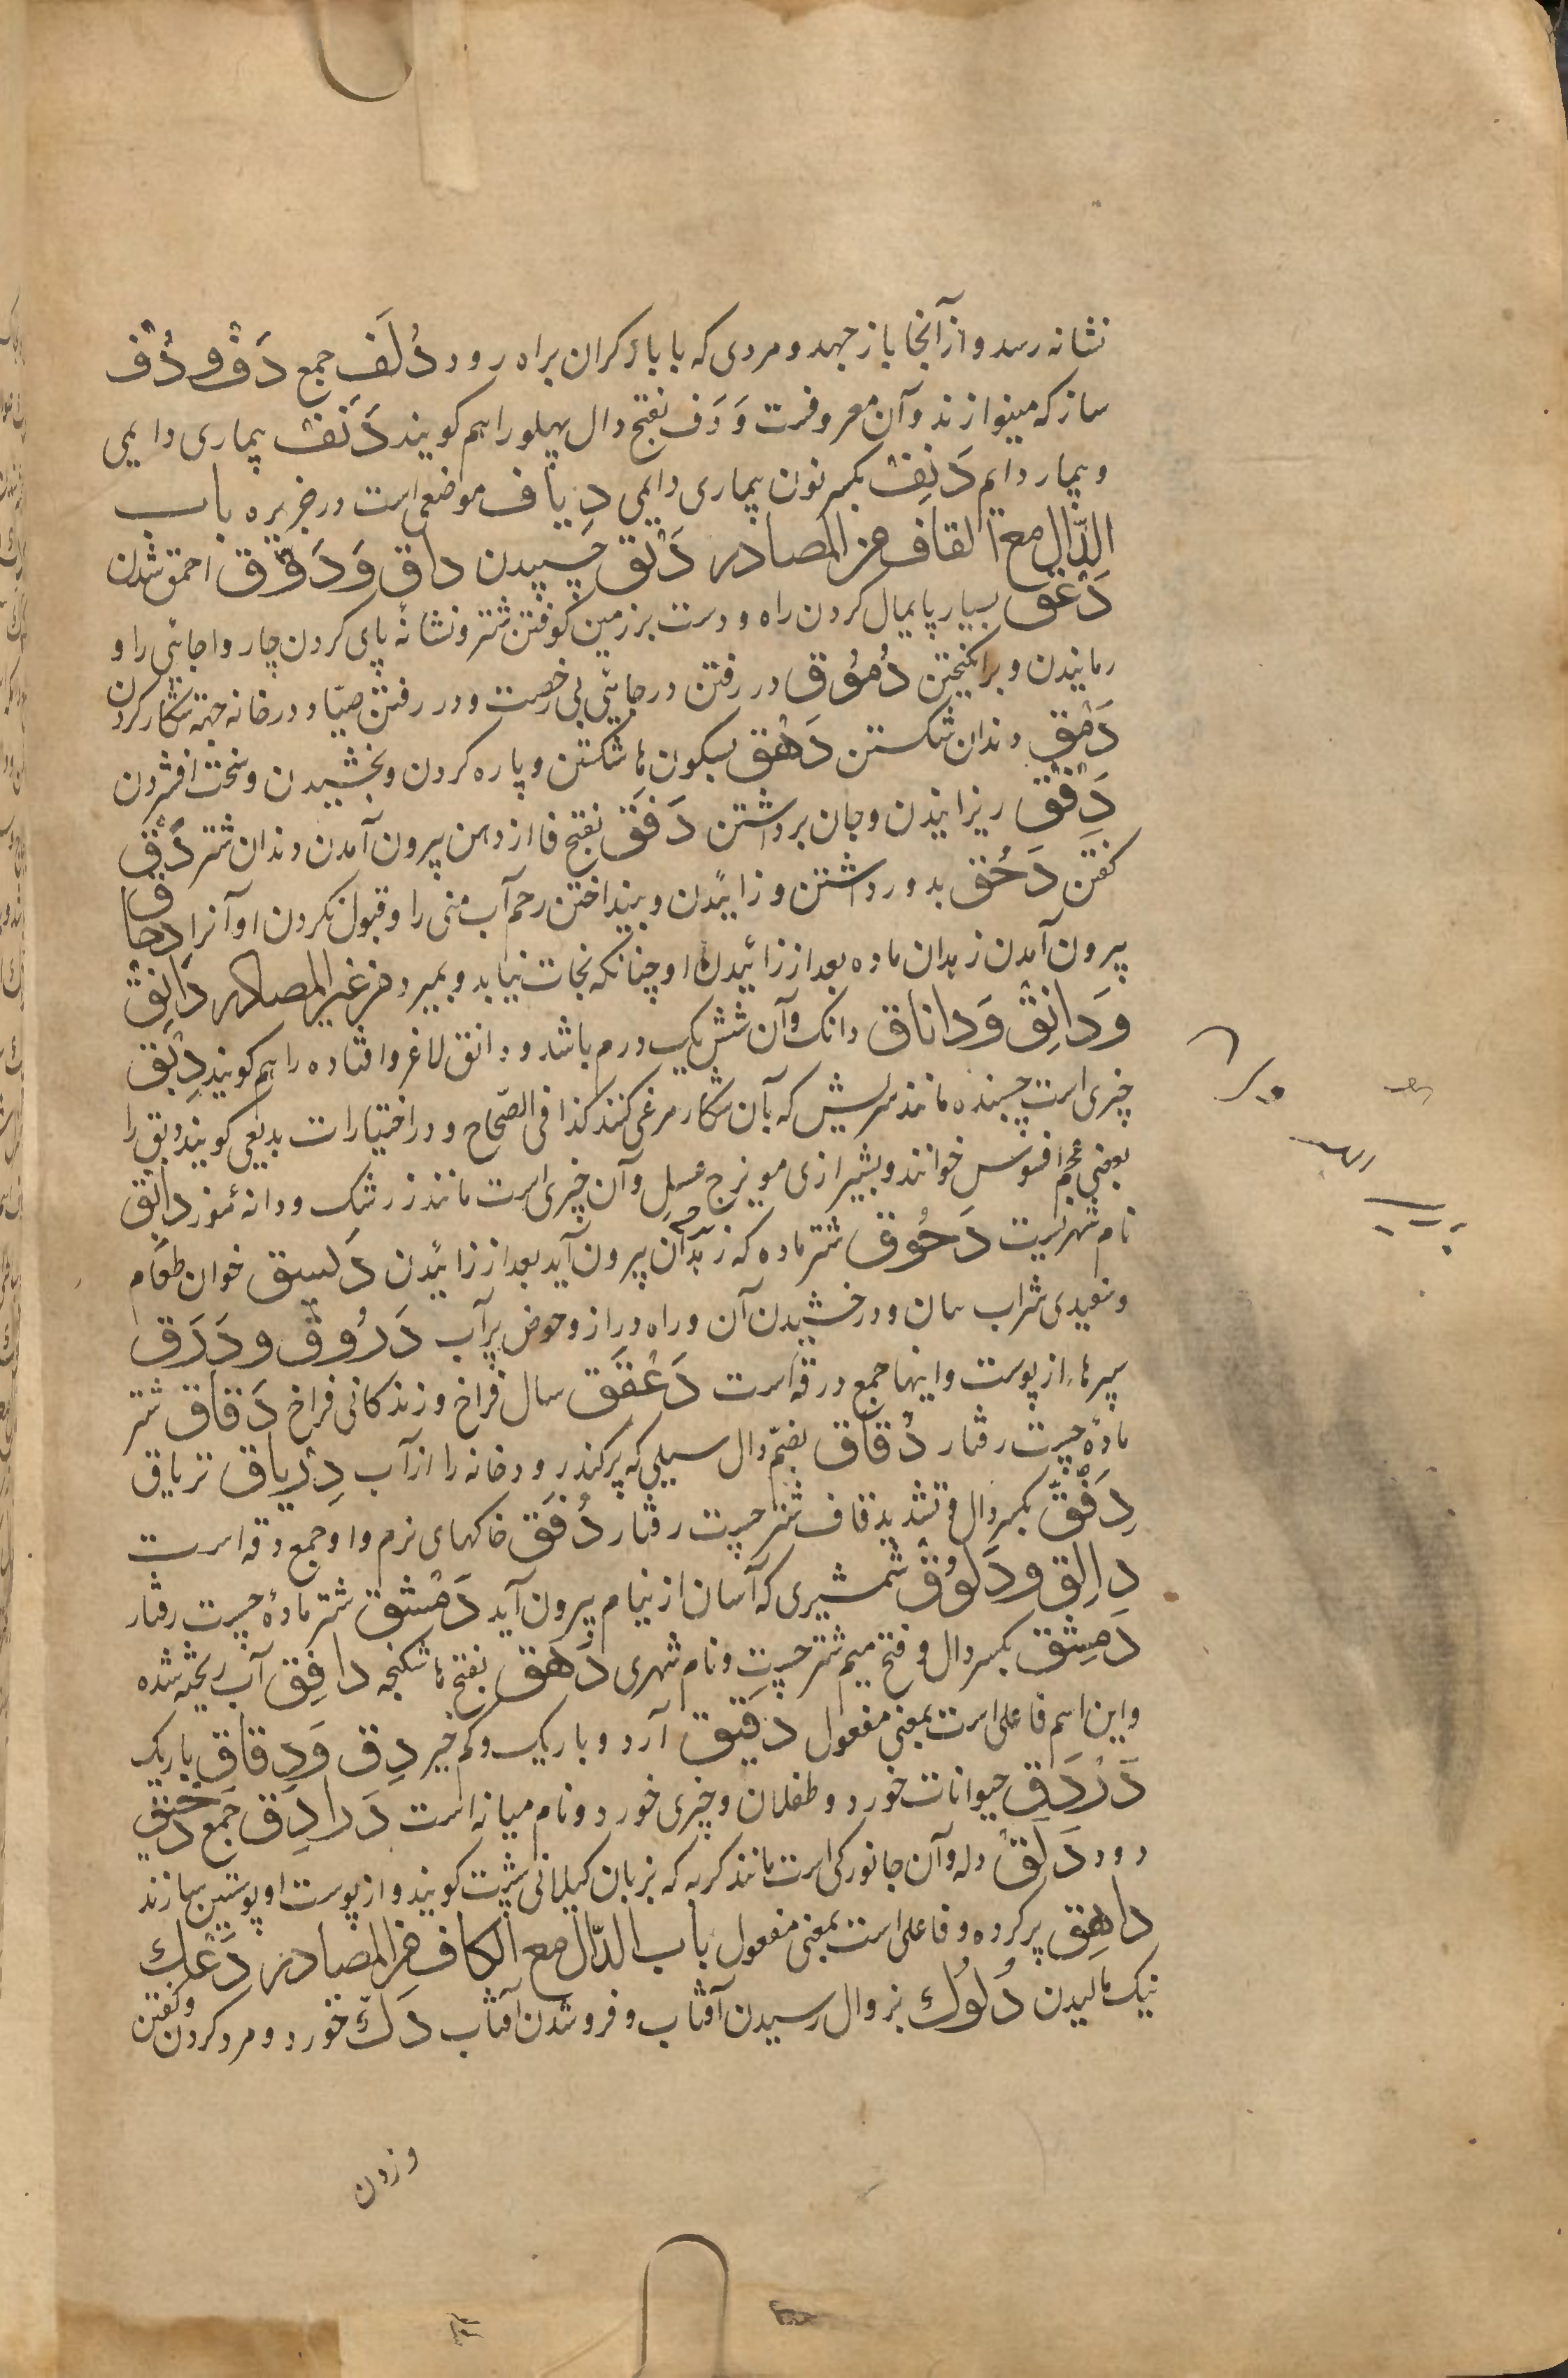 نشانه رسد و از آنجا باز جهد و مردی که با بار کران براه رود دُلَف جمع دَفّ و دُفّ
ساز که مینوازند و آن معروفست وَ دَف بفتح دال پهلو را هم کویند دَنَف بیماری دایمی
و بیمار دایم دَنِف بکسر نون بیماری دایمی دِیاف موضعی است در جزیره باب
الدّال مع القاف من المصادر دَبْق چسپیدن داق وَ دَوْق احمق شدن
دَعْق بسیار پایمال کردن راه و دست بر زمین کوفتن شتر و نشانهٔ پای کردن چاروا جائی را و
رمانیدن و برانکیختن دُمُوق در رفتن در جائی بی رخصت و در رفتن صیّاد در خانه جهته شکار کردن
دَمْق دندان شکستن دَهْق بسکون ها شکستن و پاره کردن و بخشیدن و سخت افشردن
دَفْق ریزانیدن و جان برداشتن دَفَق بفتح فا از دهن بیرون آمدن دندان شتر دَقّ
کفتن دَحْق بدور داشتن و زائیدن و بینداختن رحم آب منی را و قبول نکردن او آنرا دِحاق
بیرون آمدن زهدان ماده بعد از زائیدن او چنانکه نجات نیابد و بمیرد من غیر المصادر دانَق
وَ دانِق وَ داناق دانک و آن شش یک درم باشد و دانق لاغر و افتاده را هم کویند دِبْق
چیزی است چسپنده مانند سریش که بآن شکار مرغی کنند کذا فی الصّحاح و در اختیارات بدیعی کویند دبق را
بعضی عجم افنوس خوانند و بشیرازی مویزج عسلی و آن چیزی است مانند زرشک و دانه مُنُز دابق
نام شهریست دَحُوق شتر ماده که زهدان بیرون آید بعد از زائیدن دَیسَق خوان طعام
و سفیدی شراب سان و درخشیدن آن و راه دراز و حوض پرآب دَرُوق و دَرَق
سپرها از پوست و اینها جمع درقه است دَغْفَق سال فراخ و زندکانی فراخ دَفاق شتر
مادهٔ چست رفتار دُفاق بضمّ دال سیلی که پر کند رودخانه را از آب دِرْیاق تریاق
دِفَقّ بکسر دال و تشدید قاف شتر چست رفتار دُقَق خاکهای نرم و او جمع دقه است
دالِق و دَلُوق شمشیری که آسان از نیام بیرون آید دَمْشَق شتر مادهٔ چست رفتار
دِمَشق بکسر دال و فتح میم شتر چست و نام شهری دَهَق بفتح ها شکنجه دافِق آب ریخته شده
و این اسم فاعلی است بمعنی مفعول دَقیق آرد و باریک و کم خیر دِقّ وَ دِقاق باریک
دَرْدَق حیوانات خورد و طفلان و چیزی خورد و نام میانه است دَرادِق جمع
دود دَلَق دله و آن جانورکی است مانند کربه که بزبان کیلانی شرت کویند و از پوست او پوستین سازند
داهِق پر کرده و فاعلی است بمعنی مفعول باب الدّال مع الکاف من المصادر دَعْك
نیک مالیدن دُلُوك بزوال رسیدن آفتاب و فرو شدن آفتاب دَكّ خورد و مرد کردن و کفتن
و زدن